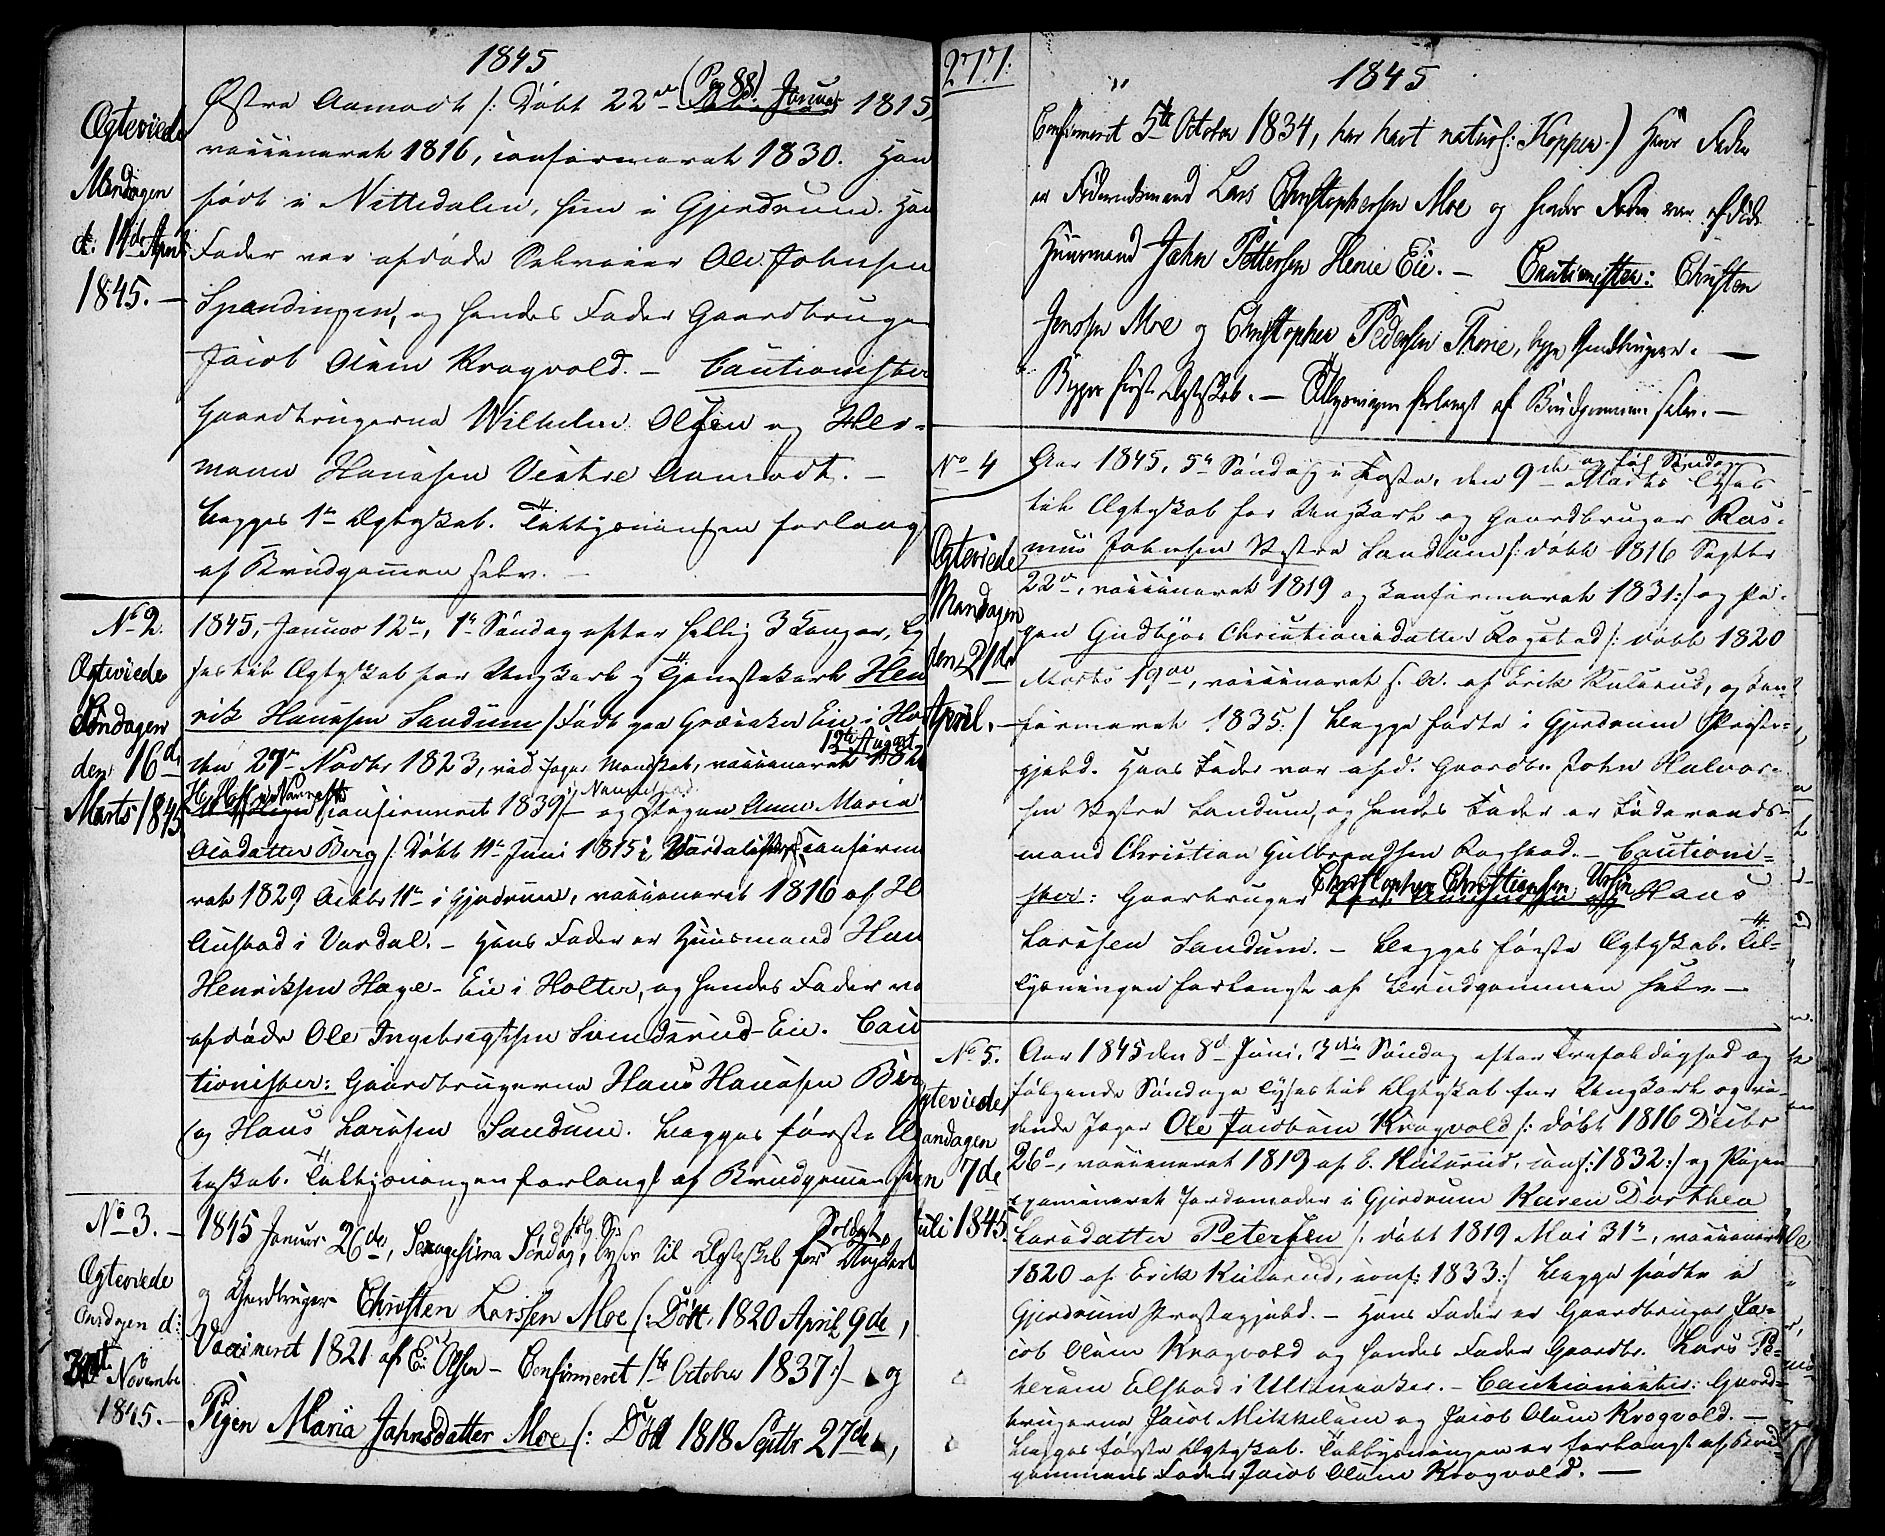 1845
Østre Aamodt /: Døbt 22de (Pag 88) Januar 1815,
vaccineret 1816, confirmeret 1830. Han
født i Nittedalen, hun i Gjerdrum. Han
Fader var afdøde Selveier Ole Johnsen
Spandingen, og hendes Fader Gaardbruger
Jacob Olsen Krogvold. — Cautionister
Gaardbrugerne Wilhelm Olsen og Her-
mann Hansen Vestre Aamodt. —
Begges 1ste Ægteskab. Tillysningen forlangt
af Brudgommen selv. —
Ægteviede
Mandagen
d: 14de April
1845. —
No 2.
Ægteviede
Søndagen
den 16de
Marts 1845
1845, Januar 12te, 1ste Søndag efter hellig 3 Konger, ly
ses til Ægteskab for Ungkarl og Tjenestekarl Hen
rik Hansen Sandum /: Født paa Eie i
den 27de Novbr 1823, ved Jæger Mandskab, vaccineret 12te August
confirmeret 1839 i Nannestad — og Pigen Anne Maria
Olsdatter Berg /: Døbt 11te Juni 1815 i Vardal, confirme
ret 1829 Octbr 11te i Gjerdrum, vaccineret 1816 af H
Austad i Vardal. — Hans Fader er Huusmand Han
Henriksen Hage-Eie i Holter, og hendes Fader va
afdøde Ole Ingebregtsen Svendsrud-Eie. Cau
tionister: Gaardbrugerne Hans Hansen Ber
og Hans Larsen Sandum. Begges første Æg
teskab. Tillysningen forlangt af Brudgommen
No 3. —
Ægteviede
Onsdagen d:
Novembr
1845. —
1845 Januar 26de, Sexagesima Søndag, lyses til Ægteskab for Soldat, Ungkarl
og Gaardbruger Christen Larsen Moe (: Døbt 1820 April 9de,
Vaccineret 1821 af E: Olsen — Confirmeret 1ste October 1837:) — og
Pigen Maria Jahnsdatter Moe (: Døbt 1818 Septbr 27de,
277.
1845
Confirmeret 5te October 1834, har havt naturl: Kopper.) Hans Fader
er Føderaadsmand Lars Christophersen Moe og hendes Fader var afdøde
Huusmand Jahn Pettersen Henie Eie. — Cautionister: Christen
Jenssen Moe og Christopher Pedersen Thorie, begge Gaardbrugere. —
Begges første Ægteskab. — Tillysningen forlangt af Brudgommen selv. —
No 4
Ægteviede
Mandagen
den 21de
April. —
Aar 1845, 5te Søndag i Faste, den 9de Marts og følg. Søndag lyses
til Ægteskab for Ungkarl og Gaardbruger Ras-
mus Johnsen Vestre Sandum /: døbt 1816 Septbr
22de, vaccineret 1819 og konfirmeret 1831:/ og Pi-
gen Gudbjør Christiansdatter Rogstad /: døbt 1820
Marts 19de, vaccineret s. A. af Erik Kulsrud, og kon-
firmeret 1835:/ Begge fødte i Gjerdrum Præste-
gjeld. Hans Fader var afd. Gaardbr. John Halvor-
sen Vestre Sandum, og hendes Fader er Føderaads-
mand Christian Gulbrandsen Rogstad. — Cautioni-
ster: Gaarbruger Christopher Christiansen og Hans
Larsen Sandum. — Begges første Ægteskab. Til-
lysningen forlangt af Brudgommen selv. —
No 5.
gteviede
andagen
n 7de
Juli 1845.
Aar 1845 den 8de Juni, 3die Søndag efter Trefoldighed og
følgende Søndage lyses til Ægteskab for Ungkarl og ri-
dende Jæger Ole Jacobsen Krogvold /: døbt 1816 Decbr
26de, vaccineret 1819 af E. Kulsrud, conf: 1832:/ og Pigen
examineret Jordemoder i Gjerdrum Karen Dorthea
Larsdatter Petersen /: døbt 1819 Mai 31te, vaccineret
1820 af Erik Kulsrud, conf: 1833:/ Begge fødte i
Gjerdrum Præstegjeld. — Hans Fader er Gaardbruger Ja-
cob Olsen Krogvold og hendes Fader Gaardbr. Lars Pe-
tersen Elstad i Ullensaker. — Cautionister: Gaard-
brugerne Jacob Mikkelsen og Jacob Olsen Krogvold. —
Begges første Ægteskab. Tillysningen er forlangt af Brud-
gommens Fader Jacob Olsen Krogvold. —